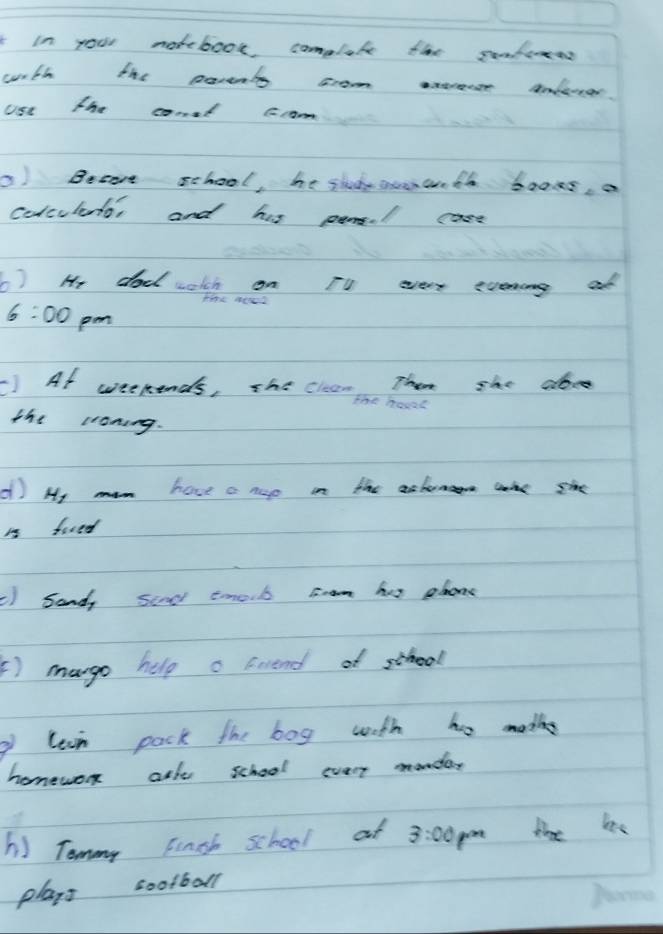 in your notebook, complete the sentences
with the parents from exercise anterior.
use the correct form
a) Before school, he with books, a
calculator and his pencil case
b) My dad watch on TV every evening at
the news
6:00 pm
c) At weekends, she clean Then she does
the house
the ironing.
d) My mom have a nap in the afternoon she
is tired
e) Sandy send emails from his phone
f) margo help a friend at school
g) kevin pack the bag with his maths
homework after school every monday
h) Tommy finish school at 3:00 pm the he
plays football
Norma